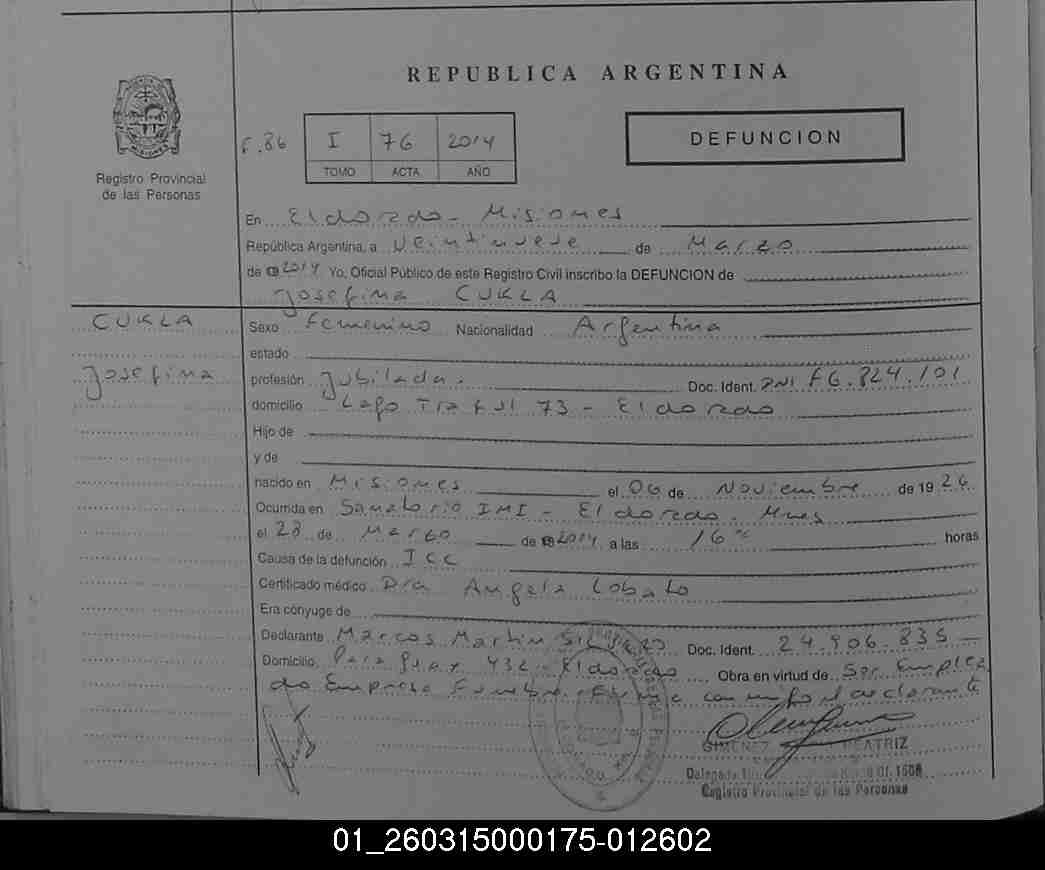 REPUBLICA ARGENTINA
F.86
I 76 2014
TOMO ACTA AÑO
DEFUNCION
Registro Provincial
de las Personas
En Eldorado - Misiones
República Argentina, a Veintinueve de Marzo
de 2014 Yo, Oficial Público de este Registro Civil inscribo la DEFUNCION de
Josefina CUKLA
CUKLA
Josefina
Sexo Femenino Nacionalidad Argentina
estado
profesión Jubilada. Doc. Ident. DNI F6.824.101
domicilio Lago Traful 73 - Eldorado
Hijo de
y de
nacido en Misiones el 06 de Noviembre de 19 26
Ocurrida en Sanatorio IMI - Eldorado. Mnes
el 28 de Marzo de 2014 a las 16 horas
Causa de la defunción ICC
Certificado médico Dra Angela Lobato
Era cónyuge de
Declarante Marcos Martin Doc. Ident. 24.906.835
Domicilio Paraguay 432 - Eldorado Obra en virtud de Ser Emplea
do Empresa Funebre. Firma conmigo el declarante
GIMENEZ BEATRIZ
Registro Provincial de las Personas
01_260315000175-012602